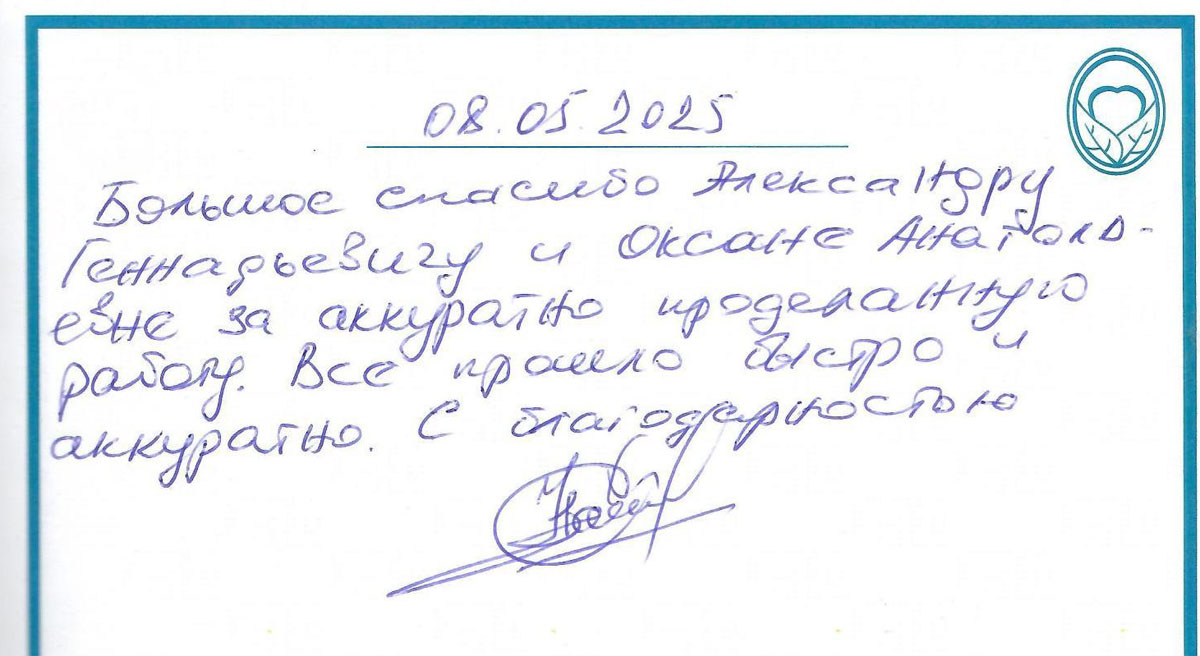 08.05.2025
Большое спасибо Александру
Геннадьевичу и Оксане Анатоль-
евне за аккуратно проделанную
работу. Все прошло быстро и
аккуратно. С благодарностью